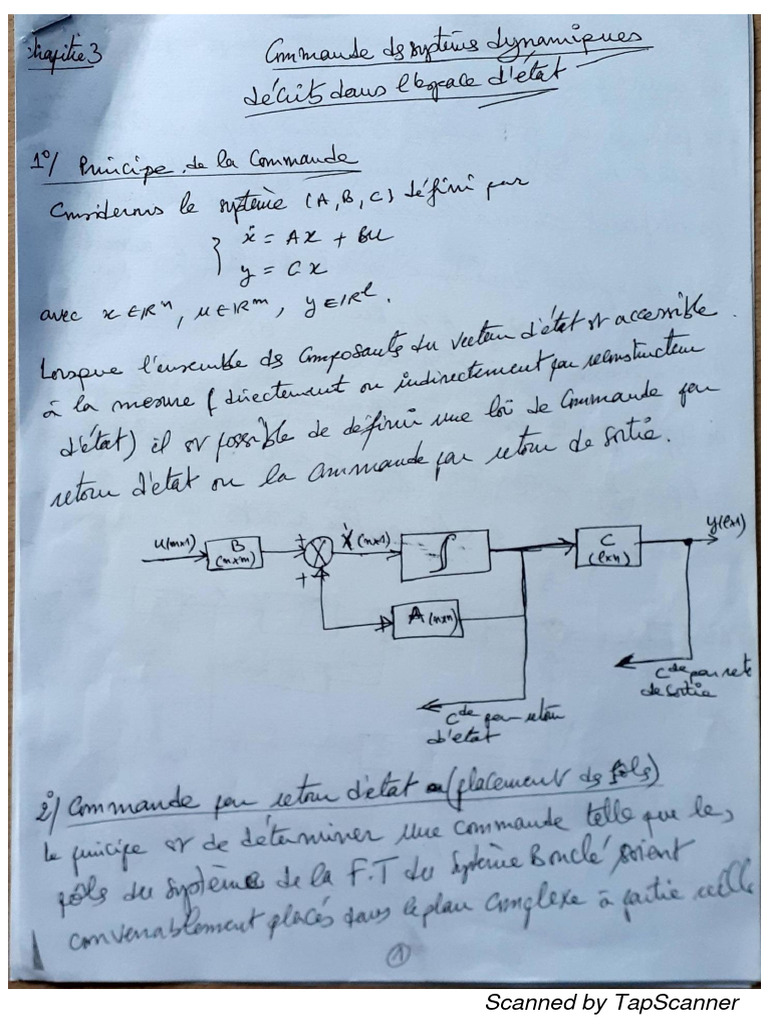 Chapitre 3
Commande ds systèmes dynamiques
décrits dans l'espace d'état
1°/ Principe de la Commande
Considerons le système (A, B, C) défini par
ẋ = Ax + Bu
y = Cx
avec x ∈ IR^n, u ∈ IR^m, y ∈ IR^l.
Lorsque l'ensemble ds composants du vecteur d'état st accessible
à la mesure (directement ou indirectement par reconstructeur
d'état) il st possible de définir une loi de commande par
retour d'état ou la commande par retour de sortie.
u(m×1)
B
(n×m)
+
+
Ẋ(n×1)
∫
A(n×n)
C
(l×n)
y(l×1)
C^de par ret
de sortie
C^de par retour
d'état
2°/ Commande par retour d'état (placement ds pôls)
le principe st de déterminer une commande telle que les
pôls du système de la F.T du système Bouclé soient
convenablement placés dans le plan Complexe à partie réelle
1
Scanned by TapScanner